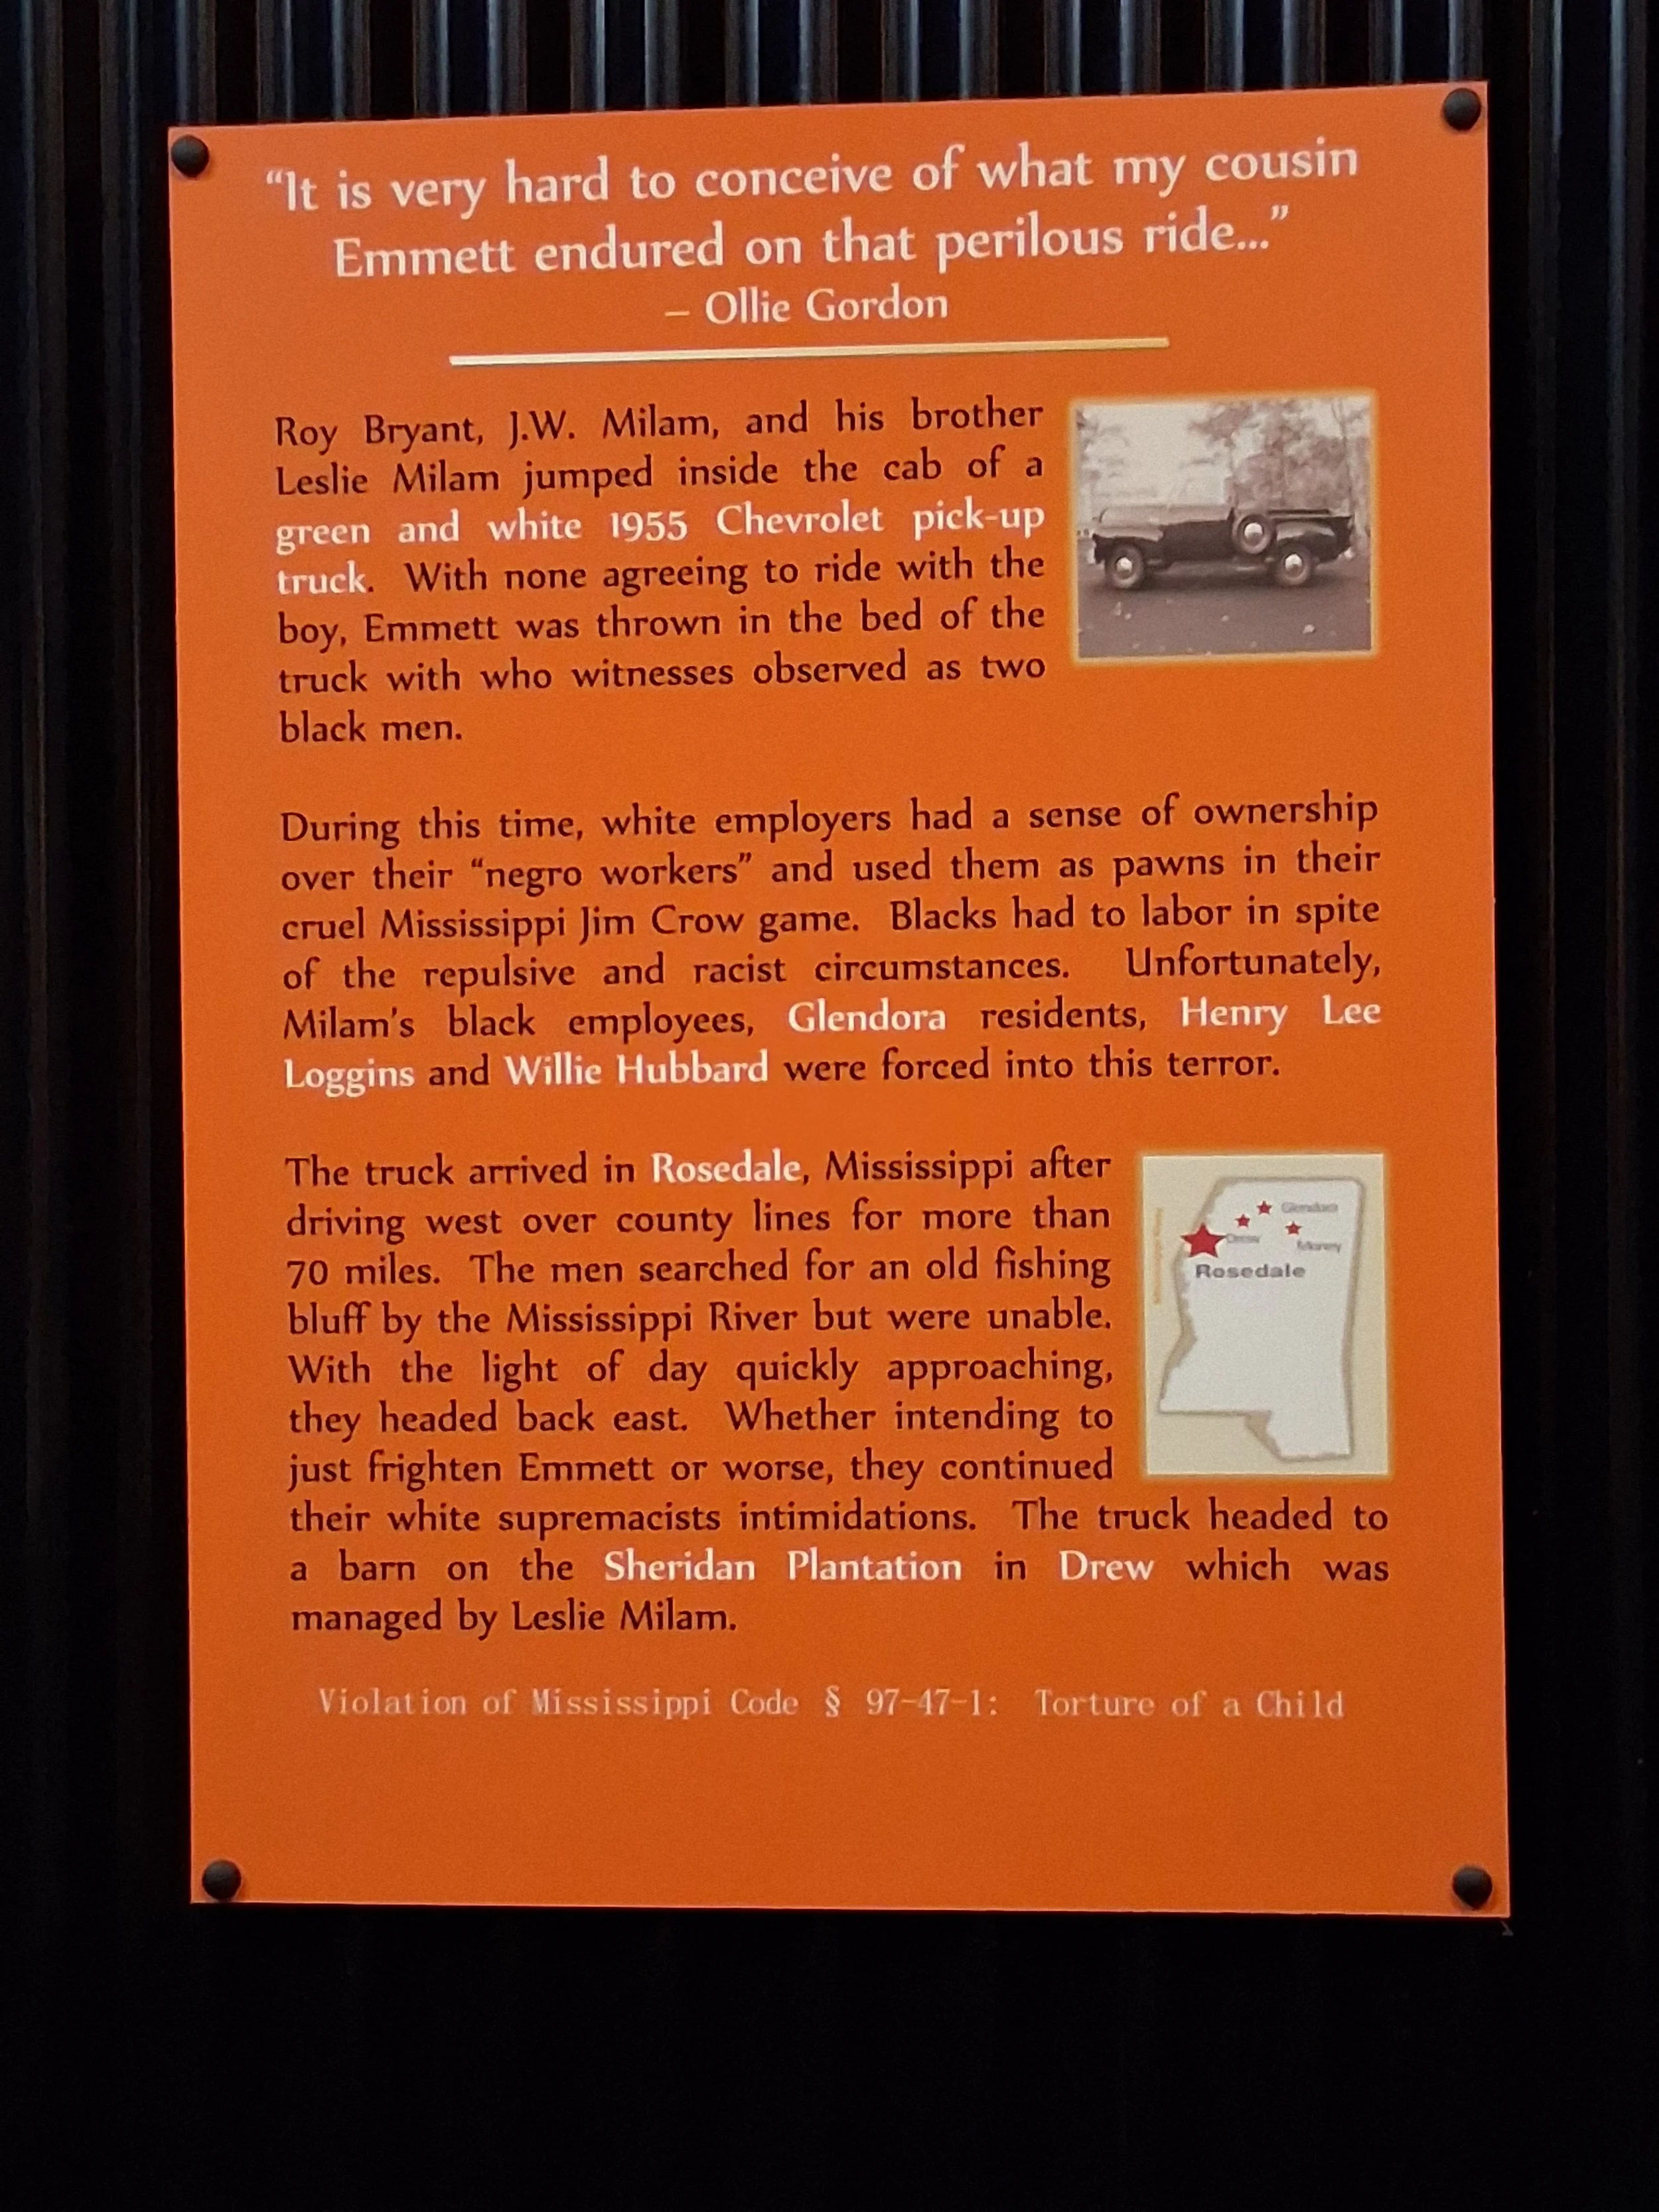 “It is very hard to conceive of what my cousin
Emmett endured on that perilous ride...”
– Ollie Gordon
Roy Bryant, J.W. Milam, and his brother
Leslie Milam jumped inside the cab of a
green and white 1955 Chevrolet pick-up
truck. With none agreeing to ride with the
boy, Emmett was thrown in the bed of the
truck with who witnesses observed as two
black men.
During this time, white employers had a sense of ownership
over their “negro workers” and used them as pawns in their
cruel Mississippi Jim Crow game. Blacks had to labor in spite
of the repulsive and racist circumstances. Unfortunately,
Milam's black employees, Glendora residents, Henry Lee
Loggins and Willie Hubbard were forced into this terror.
The truck arrived in Rosedale, Mississippi after
driving west over county lines for more than
70 miles. The men searched for an old fishing
bluff by the Mississippi River but were unable.
With the light of day quickly approaching,
they headed back east. Whether intending to
just frighten Emmett or worse, they continued
their white supremacists intimidations. The truck headed to
a barn on the Sheridan Plantation in Drew which was
managed by Leslie Milam.
Glendora
Drew
Money
Rosedale
Violation of Mississippi Code § 97-47-1: Torture of a Child